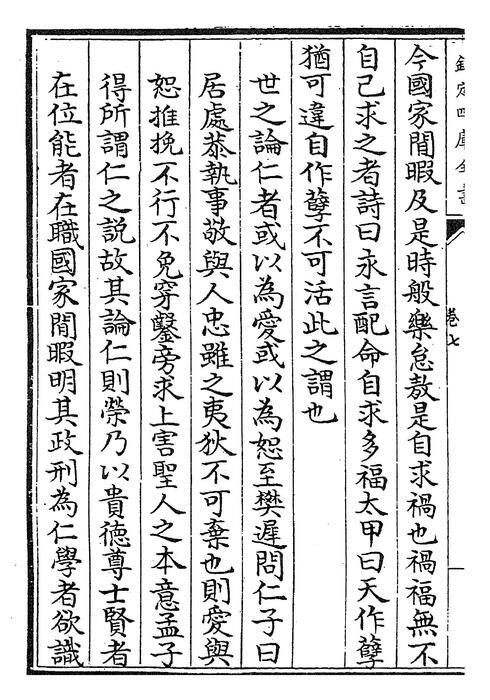 欽定四庫全書
卷七
今國家閒暇及是時般樂怠敖是自求禍也禍福無不
自己求之者詩曰永言配命自求多福太甲曰天作孽
猶可違自作孽不可活此之謂也
世之論仁者或以為愛或以為恕至樊遲問仁子曰
居處㳟執事敬與人忠雖之夷狄不可棄也則愛與
恕推挽不行不免穿鑿旁求上害聖人之本意孟子
得所謂仁之説故其論仁則榮乃以貴徳尊士賢者
在位能者在職國家閒暇明其政刑為仁學者欲識